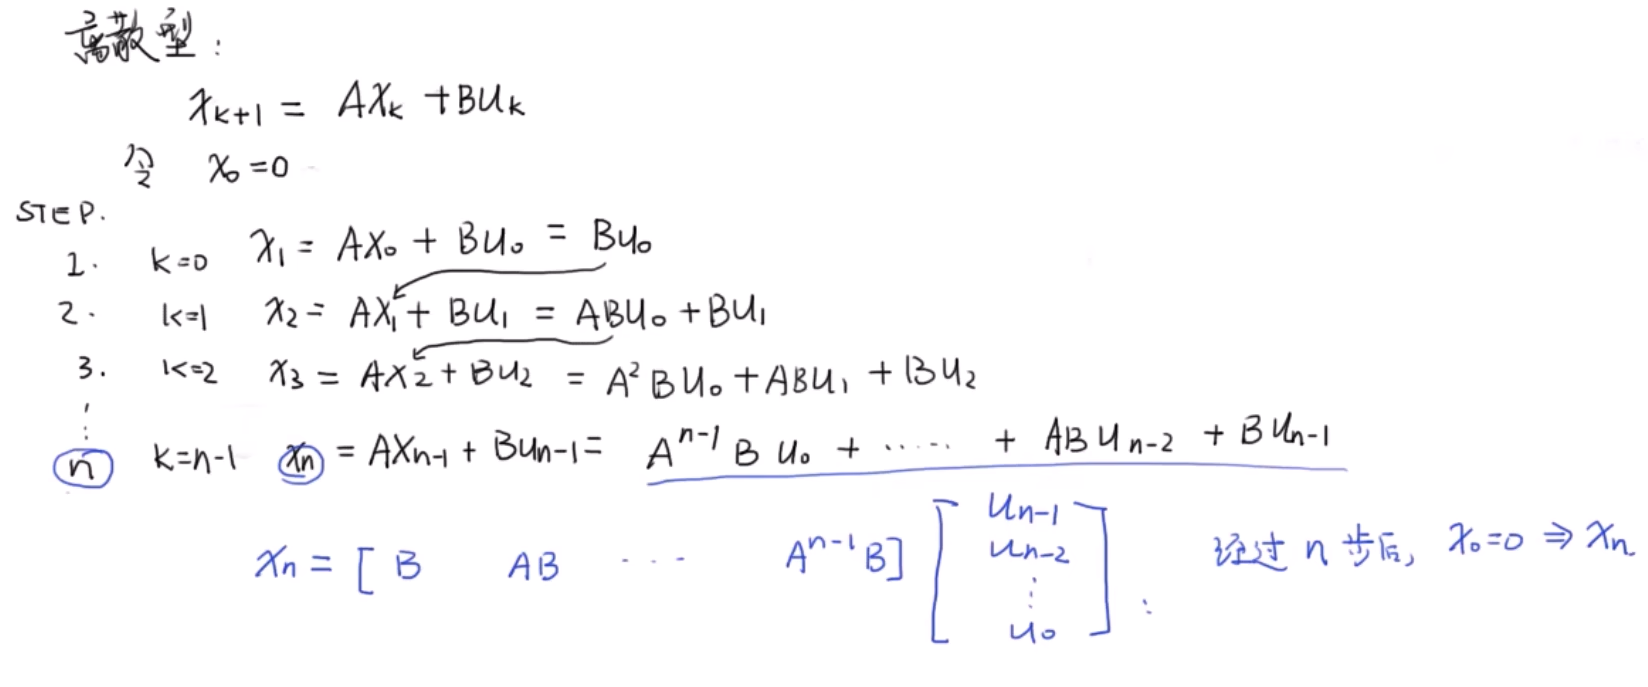 离散型:
x_{k+1} = Ax_k + Bu_k
令 x_0=0
STEP.
1. k=0 x_1 = Ax_0 + Bu_0 = Bu_0
2. k=1 x_2 = Ax_1 + Bu_1 = ABu_0 + Bu_1
3. k=2 x_3 = Ax_2 + Bu_2 = A^2Bu_0 + ABu_1 + Bu_2
⋮
n k=n-1 x_n = Ax_{n-1} + Bu_{n-1} = A^{n-1}Bu_0 + ..... + ABu_{n-2} + Bu_{n-1}
x_n = [B AB ... A^{n-1}B] [u_{n-1} u_{n-2} ⋮ u_0] : 经过n步后, x_0=0 ⇒ x_n